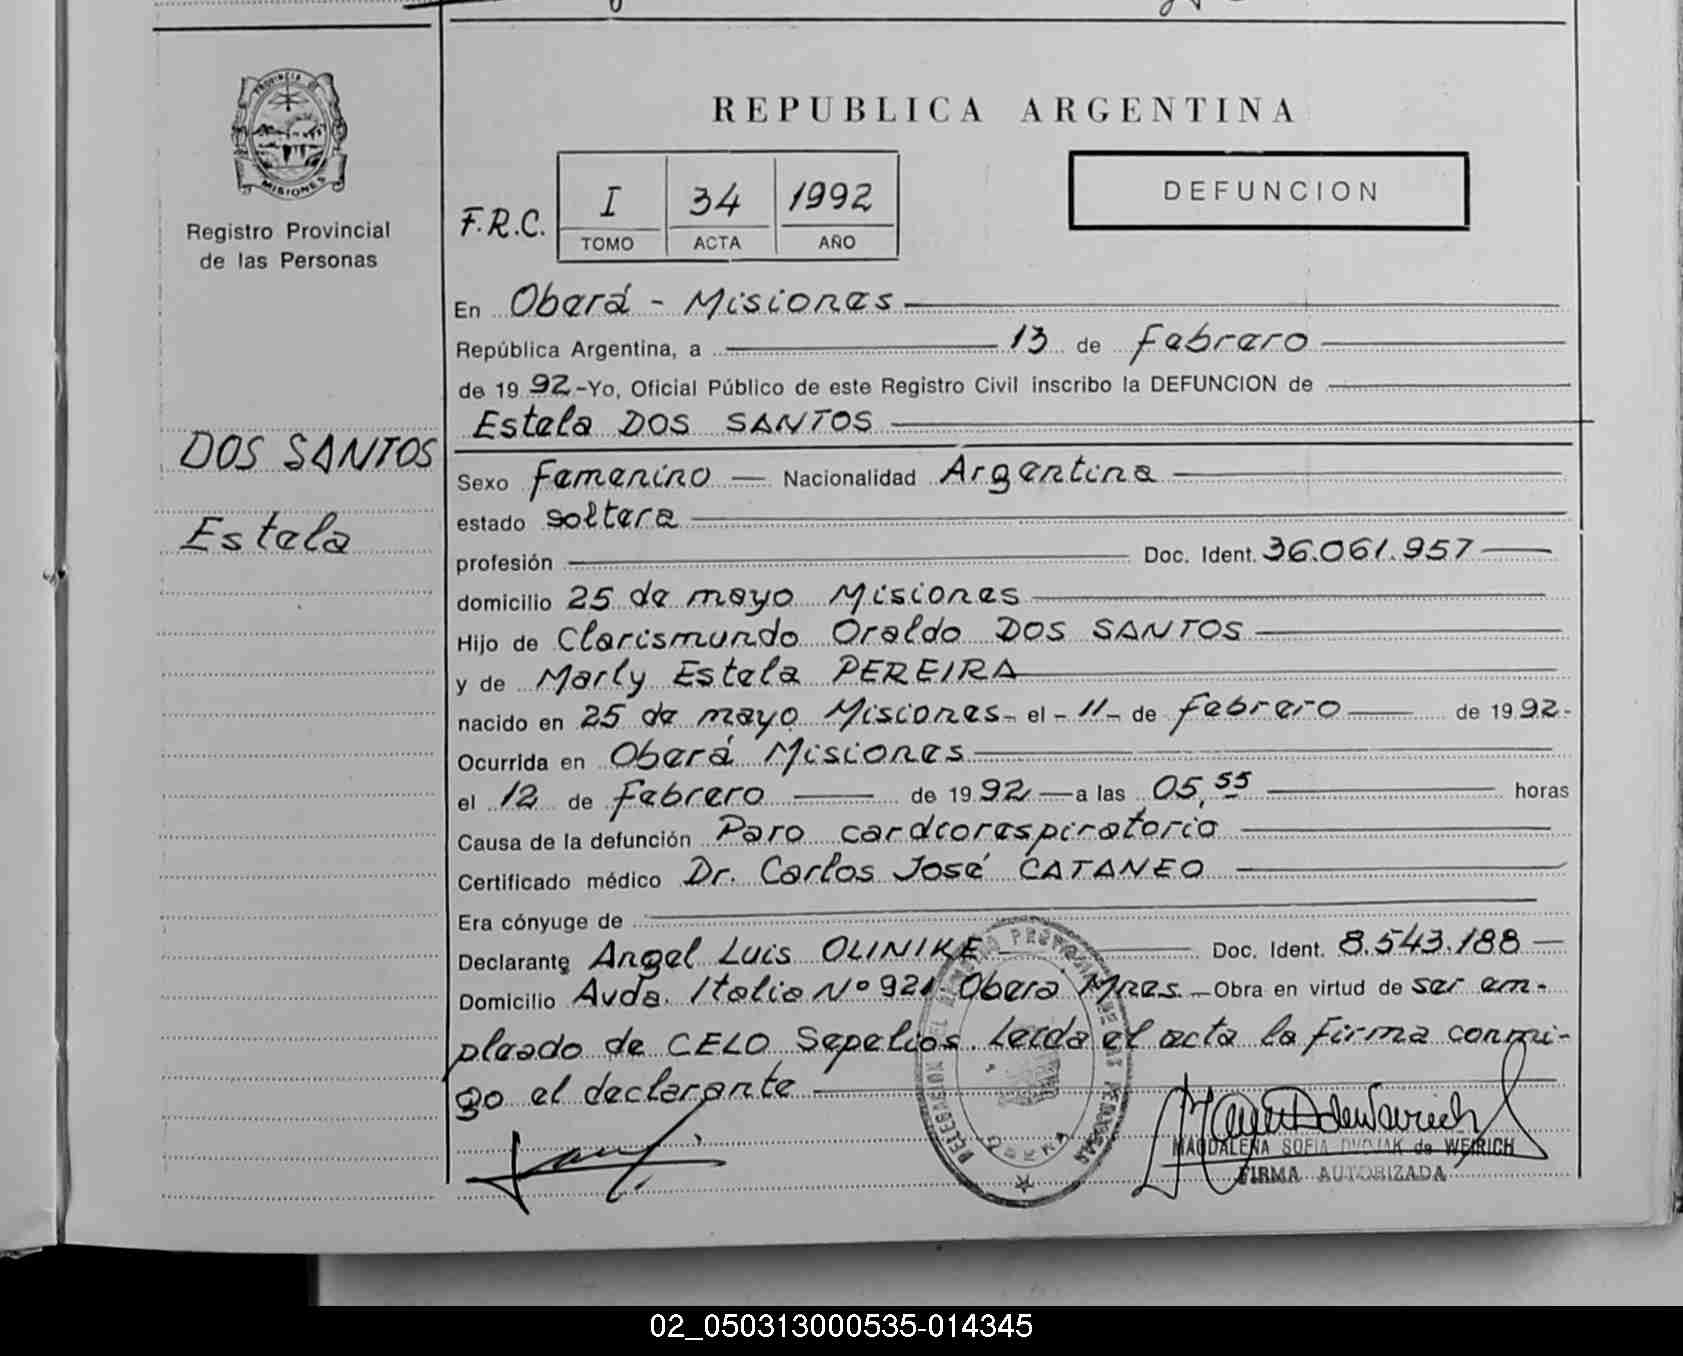 PROVINCIA DE
MISIONES
Registro Provincial
de las Personas
DOS SANTOS
Estela
REPUBLICA ARGENTINA
F.R.C.
I 34 1992
TOMO ACTA AÑO
DEFUNCION
En Oberá - Misiones
República Argentina, a 13 de febrero
de 19 92.-Yo, Oficial Público de este Registro Civil inscribo la DEFUNCION de
Estela DOS SANTOS
Sexo femenino Nacionalidad Argentina
estado soltera
profesión Doc. Ident. 36.061.957
domicilio 25 de mayo Misiones
Hijo de Clarismundo Oraldo DOS SANTOS
y de Marly Estela PEREIRA
nacido en 25 de mayo Misiones- el - 11 - de febrero de 19 92-
Ocurrida en Oberá Misiones
el 12 de febrero de 19 92 a las 05,55 horas
Causa de la defunción Paro cardiorespiratorio
Certificado médico Dr. Carlos José CATANEO
Era cónyuge de
Declarante Angel Luis OLINIKE Doc. Ident. 8.543.188
Domicilio Avda. Italia Nº 921 Oberá Mnes. Obra en virtud de ser em-
pleado de CELO Sepelios. Leída el acta la firma conmi-
go el declarante
MAGDALENA SOFIA DVOJAK de WEIRICH
FIRMA AUTORIZADA
DELEGACION DEL REGISTRO PROVINCIAL DE LAS PERSONAS
OBERA
02_050313000535-014345